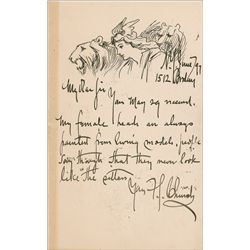 June /97
1512 Broadway
My Dear Sir You may say record.
My female heads are always
painted from living models, people
say though that they never look
like "the sitters"
Yours F. S. Church